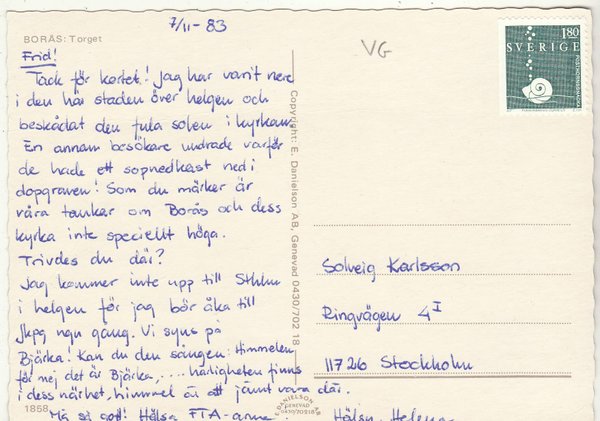 7/11-83
BORÅS: Torget
VG
Frid!
Tack för kortet! Jag har varit nere
i den här staden över helgen och
beskådat den fula solen i kyrkan.
En annan besökare undrade varför
de hade ett sopnedkast ned i
dopgraven! Som du märker är
våra tankar om Borås och dess
kyrka inte speciellt höga.
Trivdes du där?
Jag kommer inte upp till Sthlm
i helgen för jag bör åka till
Jkpg ngn gång. Vi syns på
Bjärka! Kan du den sången: Himmelen
för mej det är Bjärka, .... härligheten finns
i dess närhet, himmel är att jämt vara där.
Må så gott! Hälsa FTA-arna!
Hälsn. Helena
1858
Copyright: E. Danielson AB, Genevad 0430/702 18
E. DANIELSON AB
GENEVAD
0430/70218
180
SVERIGE
Solveig Karlsson
Ringvägen 4 I
117 26 Stockholm